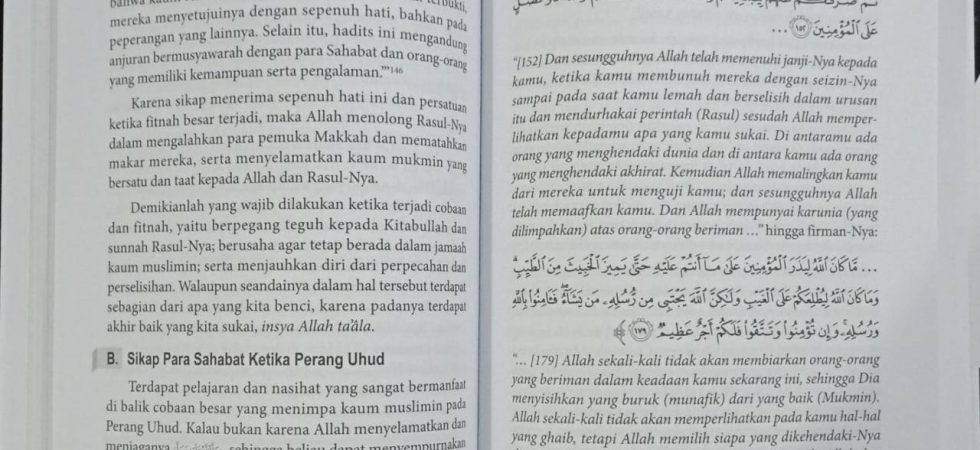 mereka menyetujuinya dengan sepenuh hati, bahkan pada
peperangan yang lainnya. Selain itu, hadits ini mengandung
anjuran bermusyawarah dengan para Sahabat dan orang-orang
yang memiliki kemampuan serta pengalaman.'"146
Karena sikap menerima sepenuh hati ini dan persatuan
ketika fitnah besar terjadi, maka Allah menolong Rasul-Nya
dalam mengalahkan para pemuka Makkah dan mematahkan
makar mereka, serta menyelamatkan kaum mukmin yang
bersatu dan taat kepada Allah dan Rasul-Nya.
Demikianlah yang wajib dilakukan ketika terjadi cobaan
dan fitnah, yaitu berpegang teguh kepada Kitabullah dan
sunnah Rasul-Nya; berusaha agar tetap berada dalam jamaah
kaum muslimin; serta menjauhkan diri dari perpecahan dan
perselisihan. Walaupun seandainya dalam hal tersebut terdapat
sebagian dari apa yang kita benci, karena padanya terdapat
akhir baik yang kita sukai, insya Allah ta'ala.
B. Sikap Para Sahabat Ketika Perang Uhud
Terdapat pelajaran dan nasihat yang sangat bermanfaat
di balik cobaan besar yang menimpa kaum muslimin pada
Perang Uhud. Kalau bukan karena Allah menyelamatkan dan
menjaganya sehingga beliau dapat menyempurnakan
عَلَى الْمُؤْمِنِينَ ﴿١٥٢﴾ ...
"[152] Dan sesungguhnya Allah telah memenuhi janji-Nya kepada
kamu, ketika kamu membunuh mereka dengan seizin-Nya
sampai pada saat kamu lemah dan berselisih dalam urusan
itu dan mendurhakai perintah (Rasul) sesudah Allah memper-
lihatkan kepadamu apa yang kamu sukai. Di antaramu ada
orang yang menghendaki dunia dan di antara kamu ada orang
yang menghendaki akhirat. Kemudian Allah memalingkan kamu
dari mereka untuk menguji kamu; dan sesungguhnya Allah
telah memaafkan kamu. Dan Allah mempunyai karunia (yang
dilimpahkan) atas orang-orang beriman ..." hingga firman-Nya:
... مَّا كَانَ اللَّهُ لِيَذَرَ الْمُؤْمِنِينَ عَلَىٰ مَا أَنتُمْ عَلَيْهِ حَتَّىٰ يَمِيزَ الْخَبِيثَ مِنَ الطَّيِّبِ ۗ
وَمَا كَانَ اللَّهُ لِيُطْلِعَكُمْ عَلَى الْغَيْبِ وَلَٰكِنَّ اللَّهَ يَجْتَبِي مِن رُّسُلِهِ مَن يَشَاءُ ۖ فَآمِنُوا بِاللَّهِ
وَرُسُلِهِ ۚ وَإِن تُؤْمِنُوا وَتَتَّقُوا فَلَكُمْ أَجْرٌ عَظِيمٌ ﴿١٧٩﴾
"... [179] Allah sekali-kali tidak akan membiarkan orang-orang
yang beriman dalam keadaan kamu sekarang ini, sehingga Dia
menyisihkan yang buruk (munafik) dari yang baik (Mukmin).
Allah sekali-kali tidak akan memperlihatkan pada kamu hal-hal
yang ghaib, tetapi Allah memilih siapa yang dikehendaki-Nya